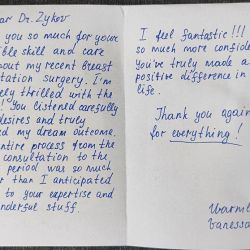 ar Dr. Zykov
you so much for your
ible skill and care
out my recent breast
tation surgery. I'm
ely thrilled with the
You listened carefully
desires and truly
ed my dream outcome.
entire process from the
consultation to the
period was so much
er than I anticipated
to your expertise and
nderful stuff.
I feel fantastic!!!
so much more confide
You've truly made a
positive difference in
life.
Thank you again
for everything!
Warml
Vanessa